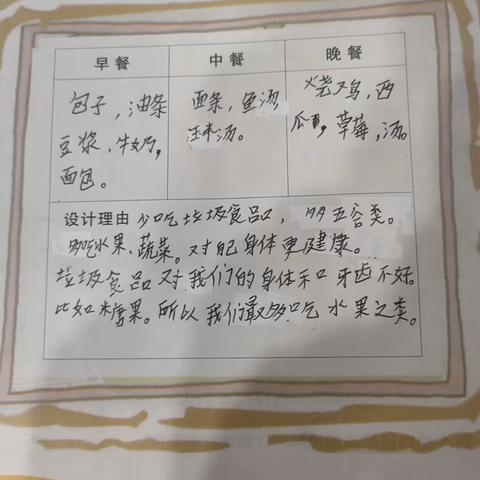 早餐 中餐 晚餐
包子，油条
豆浆，牛奶，
面包。
面条，鱼汤，
玉米汤。
烧鸡，西
瓜，草莓，汤。
设计理由 少吃垃圾食品，多五谷类。
多吃水果、蔬菜。对自己身体更健康。
垃圾食品对我们的身体和牙齿不好。
比如糖果。所以我们最多吃水果之类。